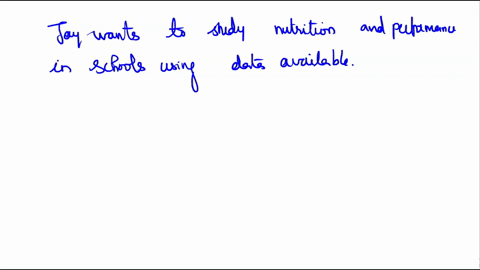 Jay wants to study nutrition and performance
in schools using data available.